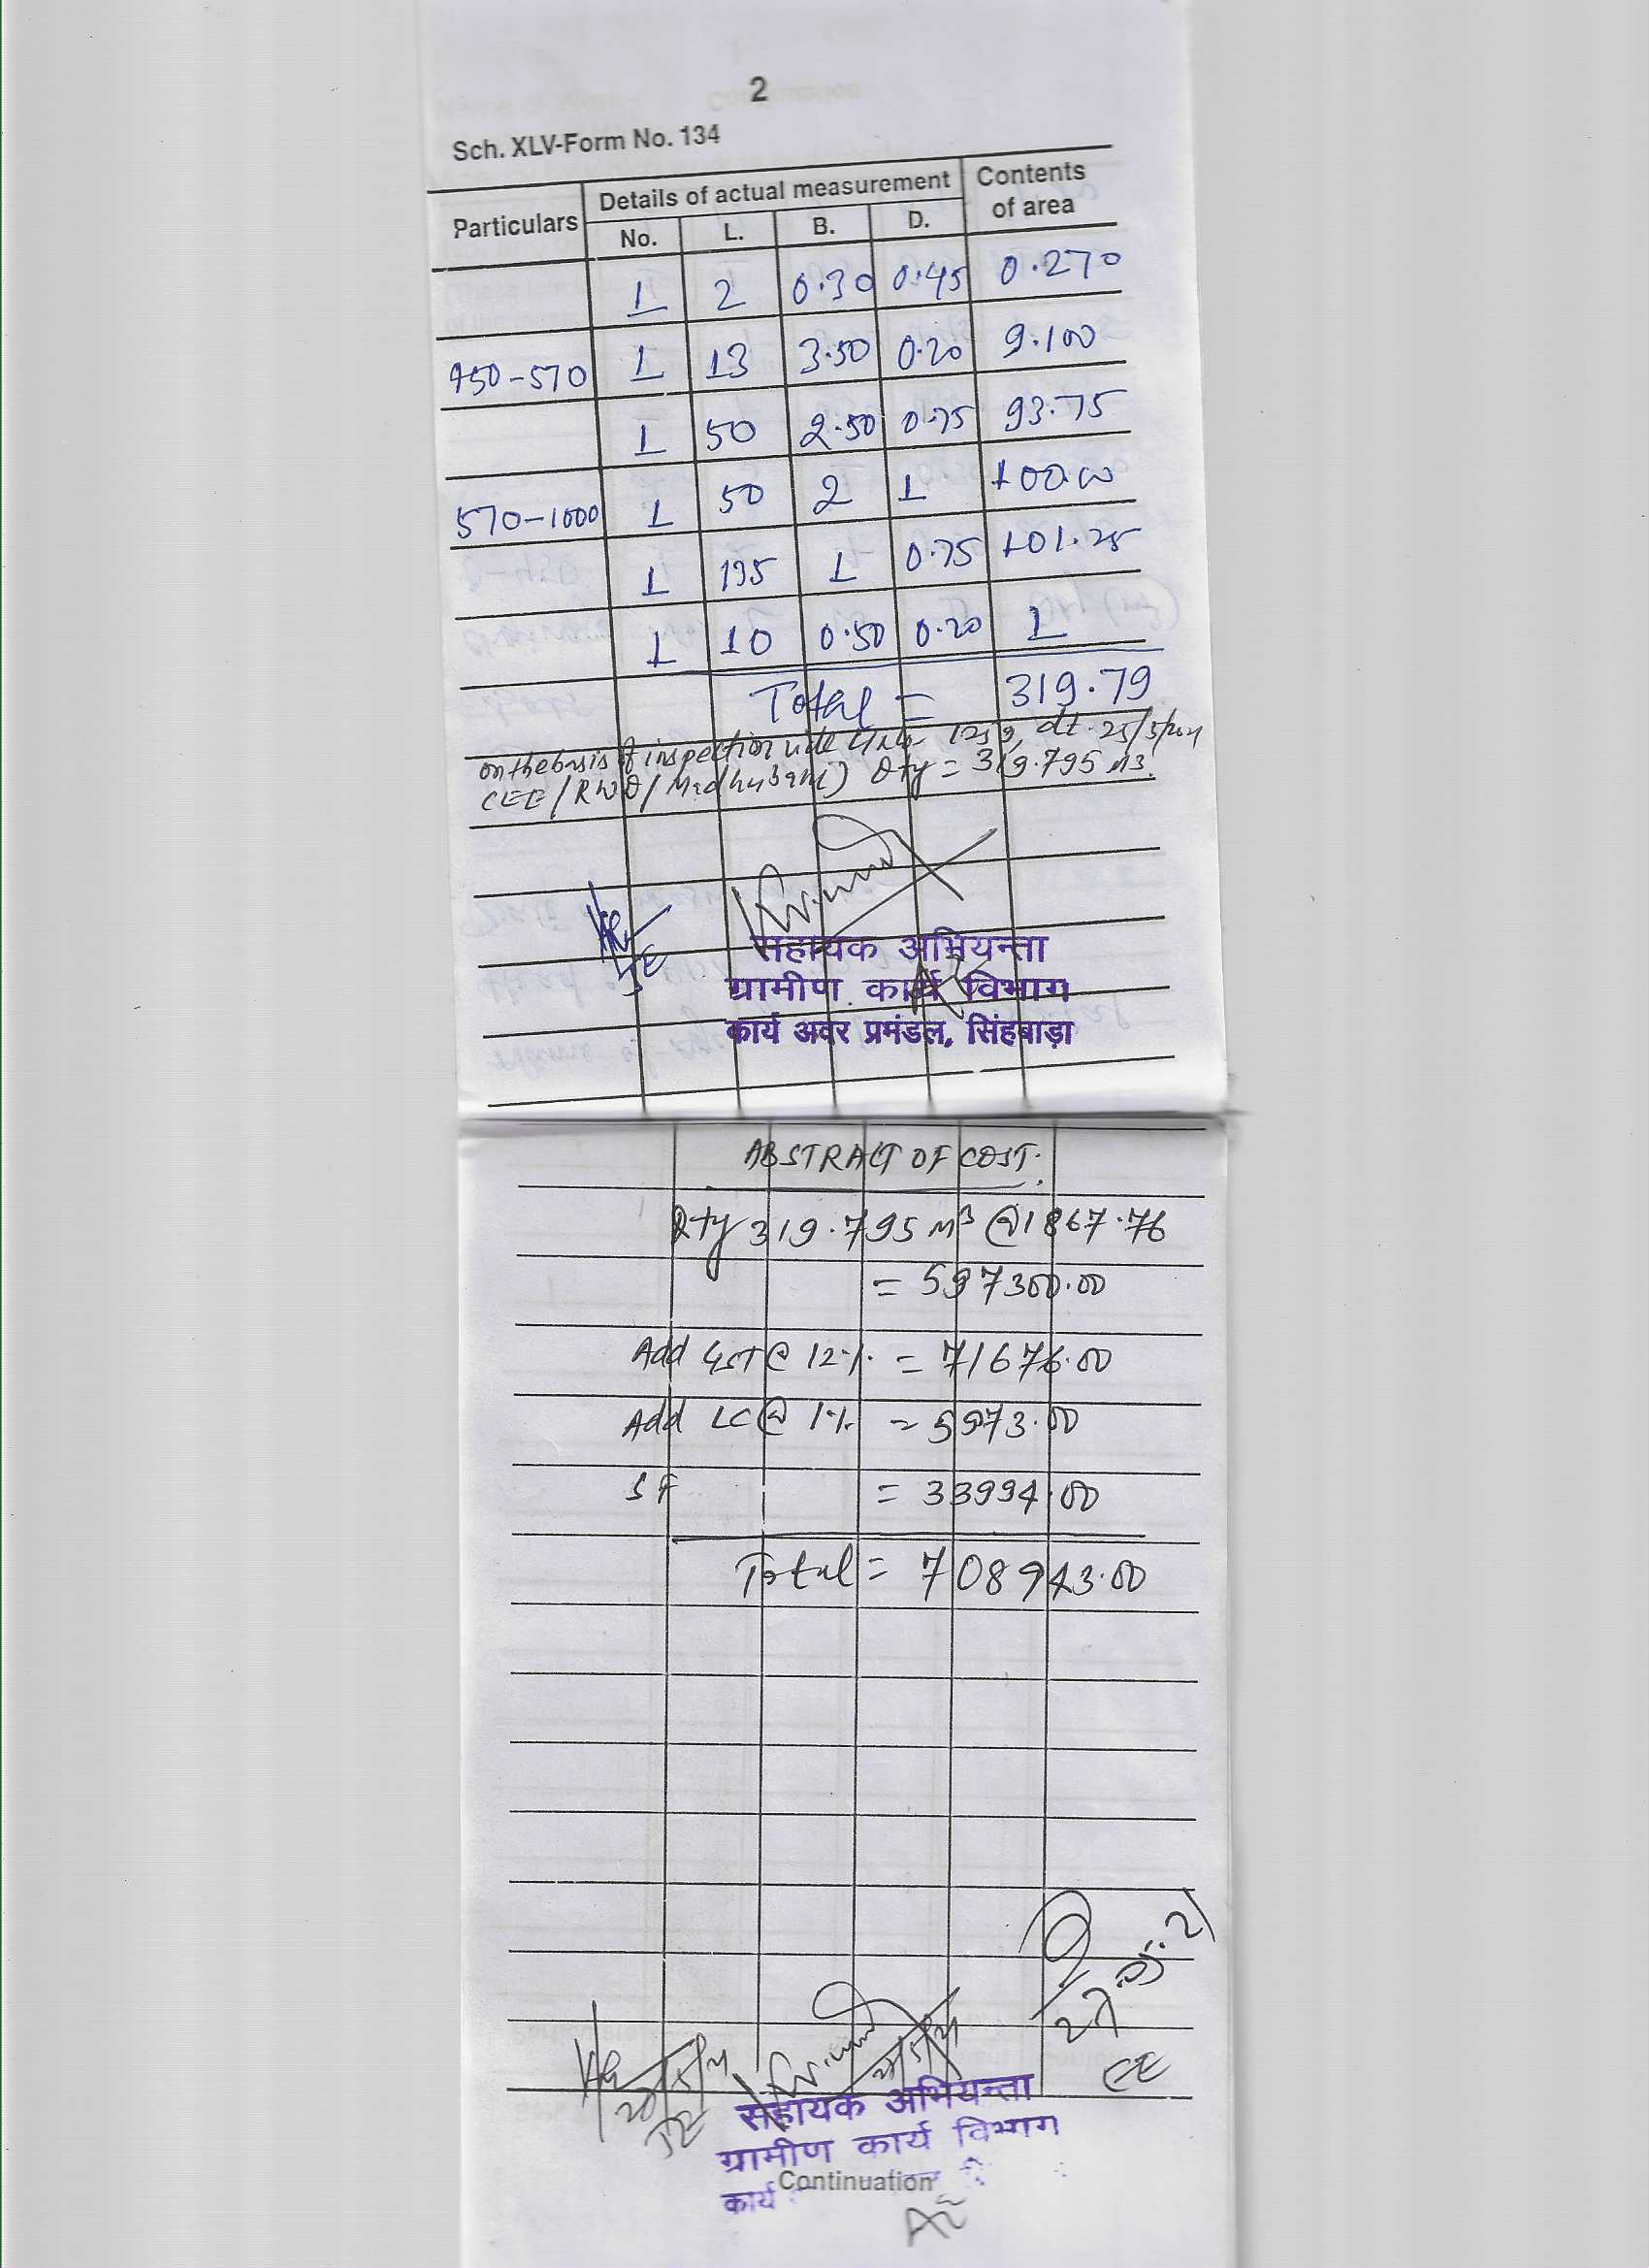 2
Sch. XLV-Form No. 134
Particulars Details of actual measurement Contents of area
No. L. B. D.
1 2 0.30 0.45 0.270
450-570 1 13 3.50 0.20 9.100
1 50 2.50 0.75 93.75
570-1000 1 50 2 1 100.00
1 135 1 0.75 101.25
1 10 0.50 0.20 1
Total = 319.79
on the basis of inspection vide dt. 25/5/2021
CEE/RWD/Madhubani) Qty = 319.795 M3.
JE
सहायक अभियन्ता
ग्रामीण कार्य विभाग
कार्य अवर प्रमंडल, सिंहवाड़ा
AE
ABSTRACT OF COST.
Qty 319.795 M3 @1867.76
= 597300.00
Add GST@ 12% = 71676.00
Add LC@ 1% = 5973.00
SF = 33994.00
Total = 708943.00
27.05.21
EE
JE
सहायक अभियन्ता
ग्रामीण कार्य विभाग
कार्य
Continuation
AE